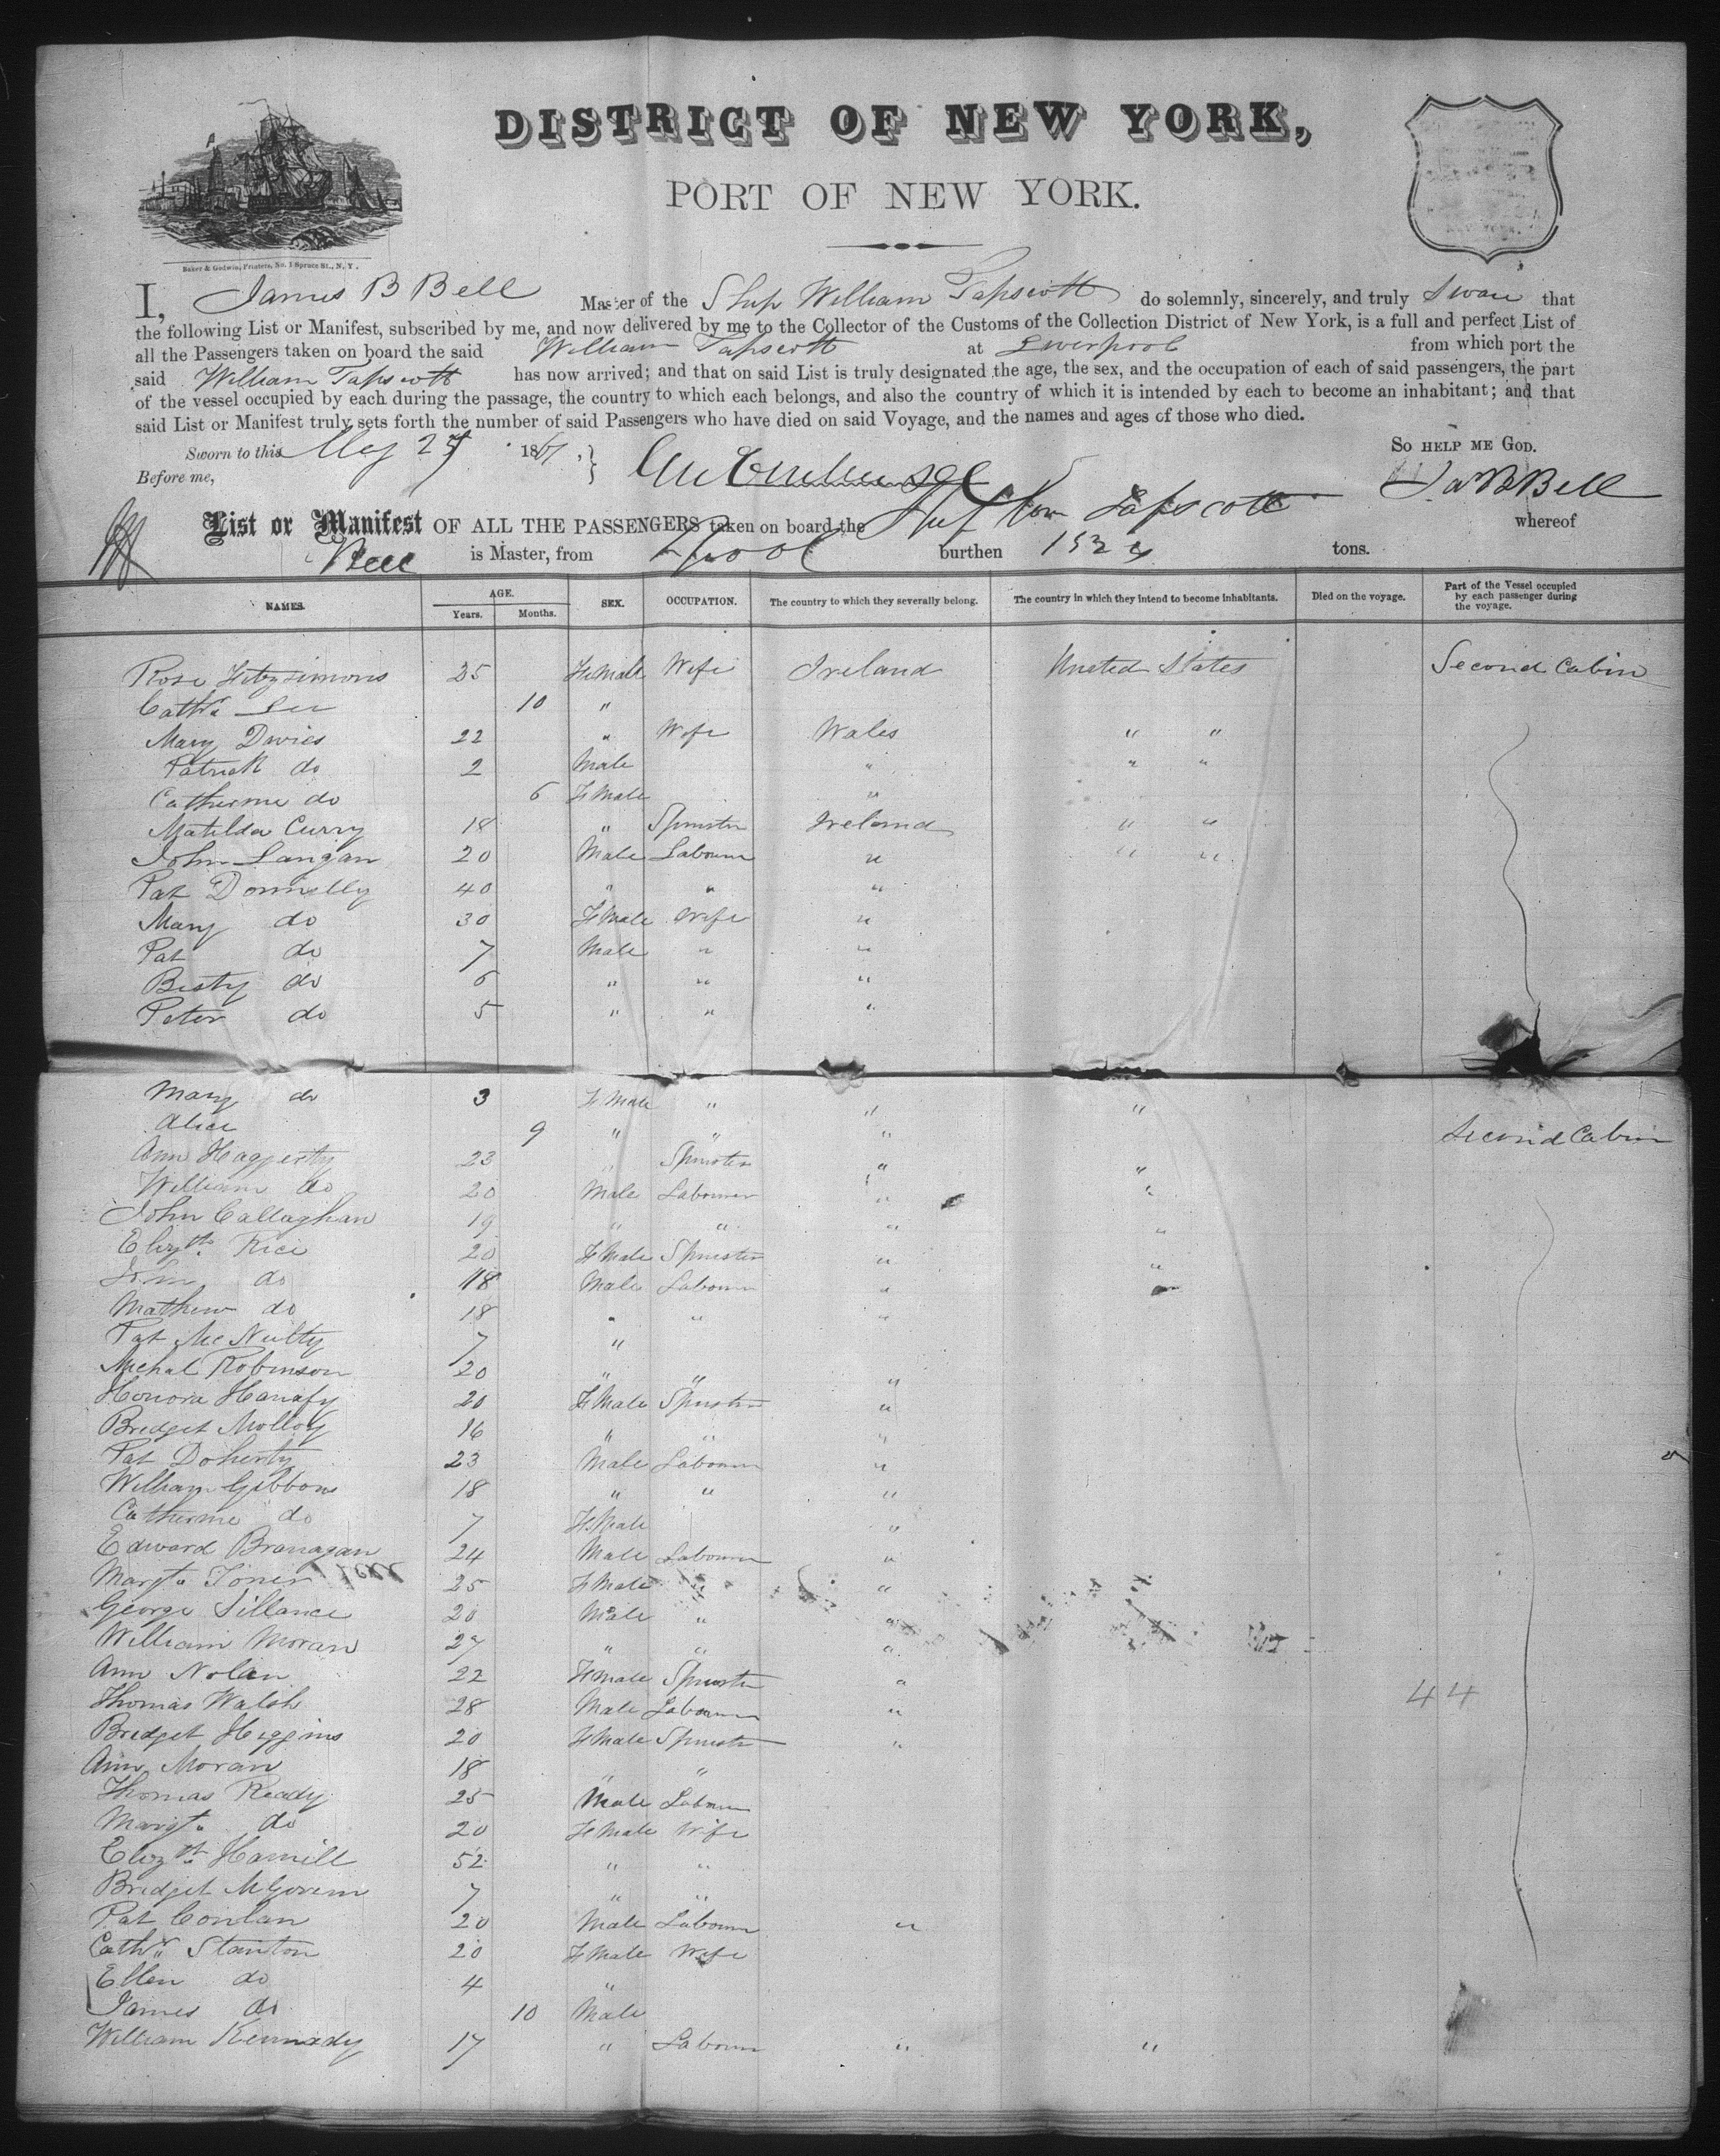 DISTRICT OF NEW YORK,
PORT OF NEW YORK.
Baker & Godwin, Printers, No. 1 Spruce St., N. Y.
I, James B Bell Master of the Ship William Tapscott do solemnly, sincerely, and truly Swear that
the following List or Manifest, subscribed by me, and now delivered by me to the Collector of the Customs of the Collection District of New York, is a full and perfect List of
all the Passengers taken on board the said William Tapscott at Liverpool from which port the
said William Tapscott has now arrived; and that on said List is truly designated the age, the sex, and the occupation of each of said passengers, the part
of the vessel occupied by each during the passage, the country to which each belongs, and also the country of which it is intended by each to become an inhabitant; and that
said List or Manifest truly sets forth the number of said Passengers who have died on said Voyage, and the names and ages of those who died.
Sworn to this May 186 SO HELP ME GOD.
Before me, Ja B Bell
List or Manifest OF ALL THE PASSENGERS taken on board the Ship Wm Tapscott whereof
Bell is Master, from L'pool burthen 152 tons.
NAMES. AGE. Years. Months. SEX. OCCUPATION. The country to which they severally belong. The country in which they intend to become inhabitants. Died on the voyage. Part of the Vessel occupied by each passenger during the voyage.
Rose Fitzsimons 35 FeMale Wife Ireland United States Second Cabin
Cathr. Lee 10 "
Mary Davies 22 " Wife Wales " "
Patrick do 2 Male " " "
Catherine do 6 FeMale "
Matilda Curry 18 " Spinster Ireland " "
John Langan 20 Male Labourer " " "
Pat Donnelly 40 " " "
Mary do 30 FeMale Wife "
Pat do 7 Male " "
Besty do 6 " " "
Peter do 5 " " "
Mary do 3 FeMale " " "
Alice 9 " " " Second Cabin
Ann Haggerty 23 " Spinster " "
William do 20 Male Labourer " "
John Callaghan 19 " " " "
Elizth Rice 20 FeMale Spinster " "
John do 18 Male Labourer "
Mathew do 18 " " "
Pat McNulty 7 "
Michal Robinson 20 " " "
Honora Hanafy 20 FeMale Spinster "
Bridget Molloy 16 " " "
Pat Doherty 23 Male Labourer "
William Gibbons 18 " " "
Catherine do 7 FeMale "
Edward Branagan 24 Male Labourer "
Margt. Toner 25 FeMale " "
George Sillance 20 Male " "
William Moran 27 " " "
Ann Nolan 22 FeMale Spinster "
Thomas Walsh 28 Male Labourer " 44
Bridget Higgins 20 FeMale Spinster "
Ann Moran 18 " "
Thomas Ready 25 Male Labourer
Margt. do 20 FeMale Wife
Elizth Hamill 52 " "
Bridget McGovern 7 " "
Pat Conlan 20 Male Labourer "
Cathr. Stanton 20 FeMale Wife
Ellen do 4 "
James do 10 Male
William Kennady 17 " Labourer " "